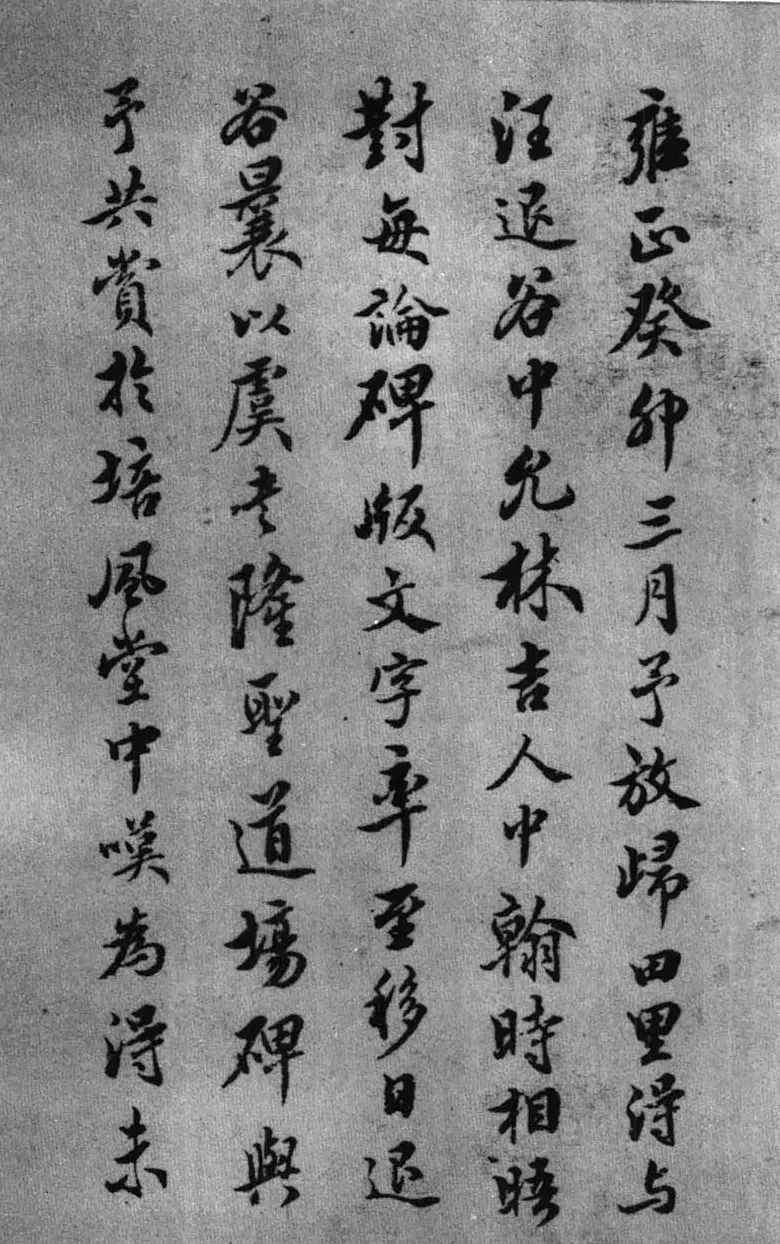 雍正癸卯三月予放歸田里得与
汪退谷中允林吉人中翰時相晤
對每論碑版文字率至移日退
谷曩以虞書隆聖道場碑與
予共賞於培風堂中嘆為得未